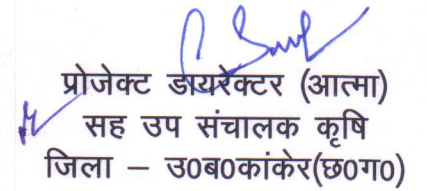 प्रोजेक्ट डायरेक्टर (आत्मा)
सह उप संचालक कृषि
जिला – उ0ब0कांकेर(छ0ग0)